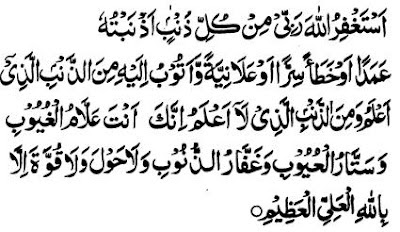 اَسْتَغْفِرُ اللهَ رَبِّىْ مِنْ كُلِّ ذُنْۢبٍ اَذْنَبْتُهٗ
عَمَدًا اَوْخَطَأً سِرًّا اَوْعَلَانِيَةً وَّاَتُوْبُ اِلَيْهِ مِنَ الذَّنْبِ الَّذِىْ
اَعْلَمُ وَمِنَ الذَّنْبِ الَّذِىْ لَآ اَعْلَمُ اِنَّكَ اَنْتَ عَلَّامُ الْغُيُوْبِ
وَسَتَّارُ الْعُيُوْبِ وَغَفَّارُ الذُّنُوْبِ وَلَاحَوْلَ وَلَا قُوَّةَ اِلَّا
بِاللهِ الْعَلِىِّ الْعَظِيْمِ○